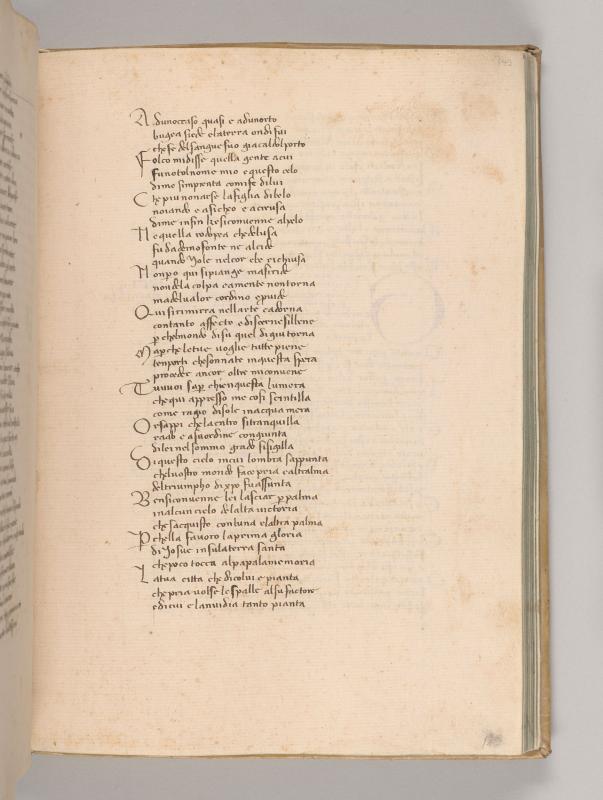 Adunoccaso quasi e adunorto
bugea siede elaterra ondi fui
chefe delsangue suo gia caldo lporto
Folco midisse quella gente acui
funotolnome mio e questo celo
dime simprenta comife dilui
Che piu nonarse lafiglia dibelo
noiando e asicheo e acreusa
dime infin kesiconvenne alpelo
Ne quella rodopea chedelusa
fu dademofonte ne alcide
quando Jole nelcor ebe richiusa
Nonpo qui sipiange masiride
nondela colpa camente nontorna
madelvalor cordino e puide
Qui sirimirra nellarte cadorna
contanto affecto e discernesillene
p chelmondo disu quel digiu torna
Map che letue voglie tutte piene
tenporti chesonnate inquesta spera
proceder ancor oltre miconvene
Tu vuoi sap chienquesta lumera
chequi appresso me cosi scintilla
come ragio disole inacqua mera
Orsappi chelaentro sitranquilla
raab e anuordine congiunta
dilei nelsommo grado sisigilla
Da questo cielo incui lombra sappunta
chelvostro mondo face pria caltralma
deltriumpho di xpo fu assunta
Bensiconvenne lei lasciar p palma
inalcun cielo delalta victoria
chesacquisto conluna elaltra palma
Pchella favoro laprima gloria
di Josue insulaterra santa
chepoco tocca alpapa lamemoria
La tua citta che dicolui e pianta
chepria volse lespalle alsu factore
edicui e lanvidia tanto pianta